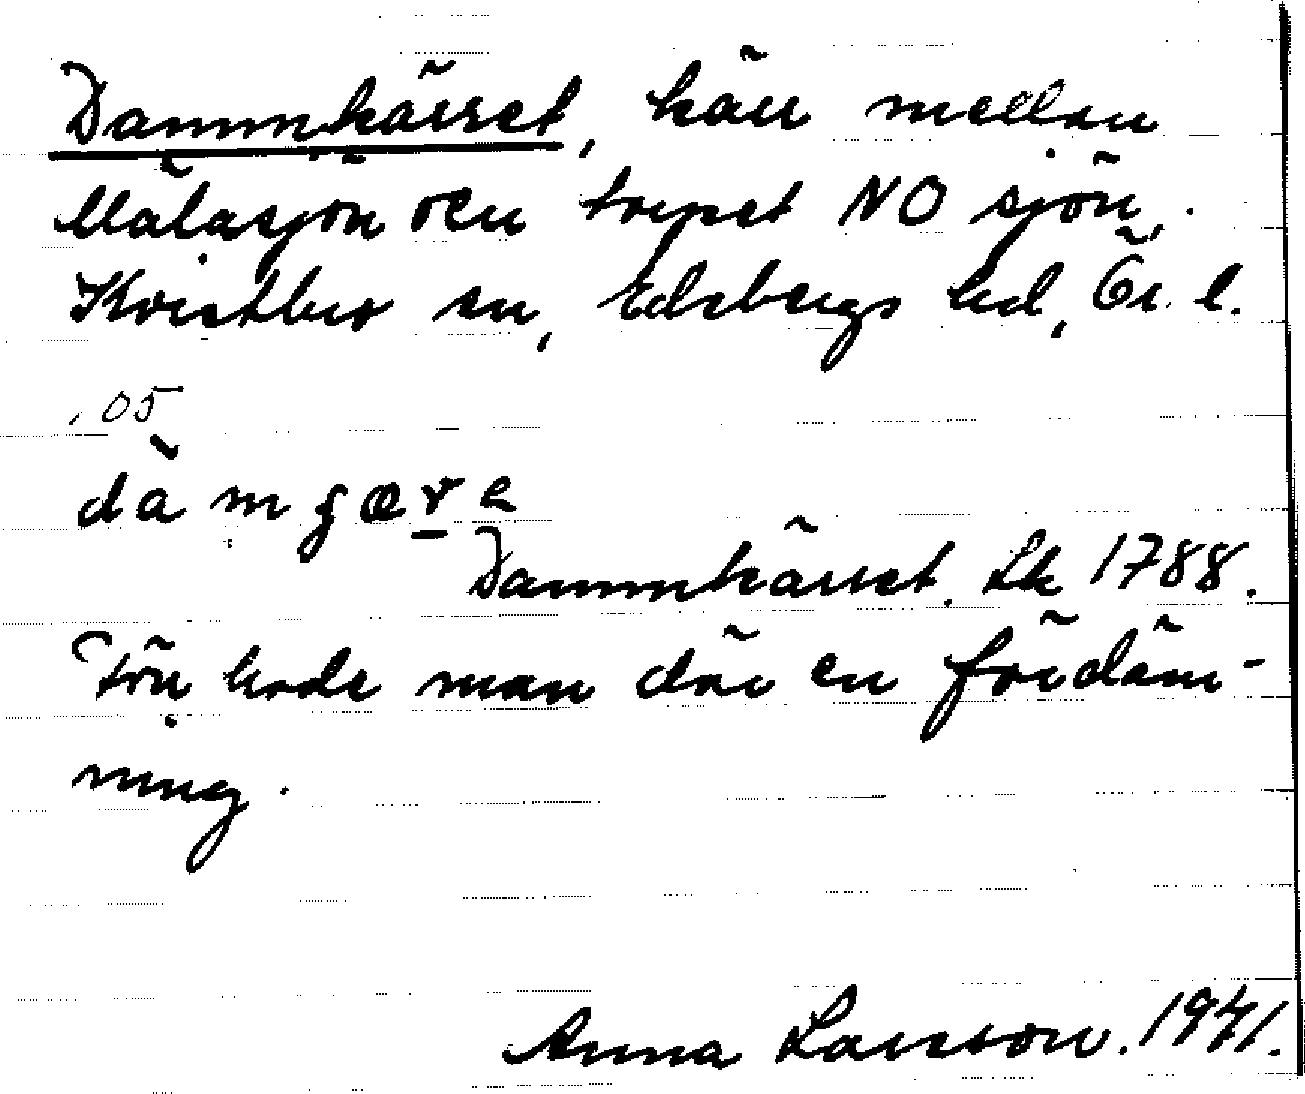 Dammkärret, kärr mellan
Målasjön och torpet NO sjön,
Kvistbro sn, Edsbergs hd, Ör. l.
.05
då m g æ r e
Dammkärret. Lk 1788.
Förr hade man där en fördäm-
ning.
Anna Larsson. 1941.